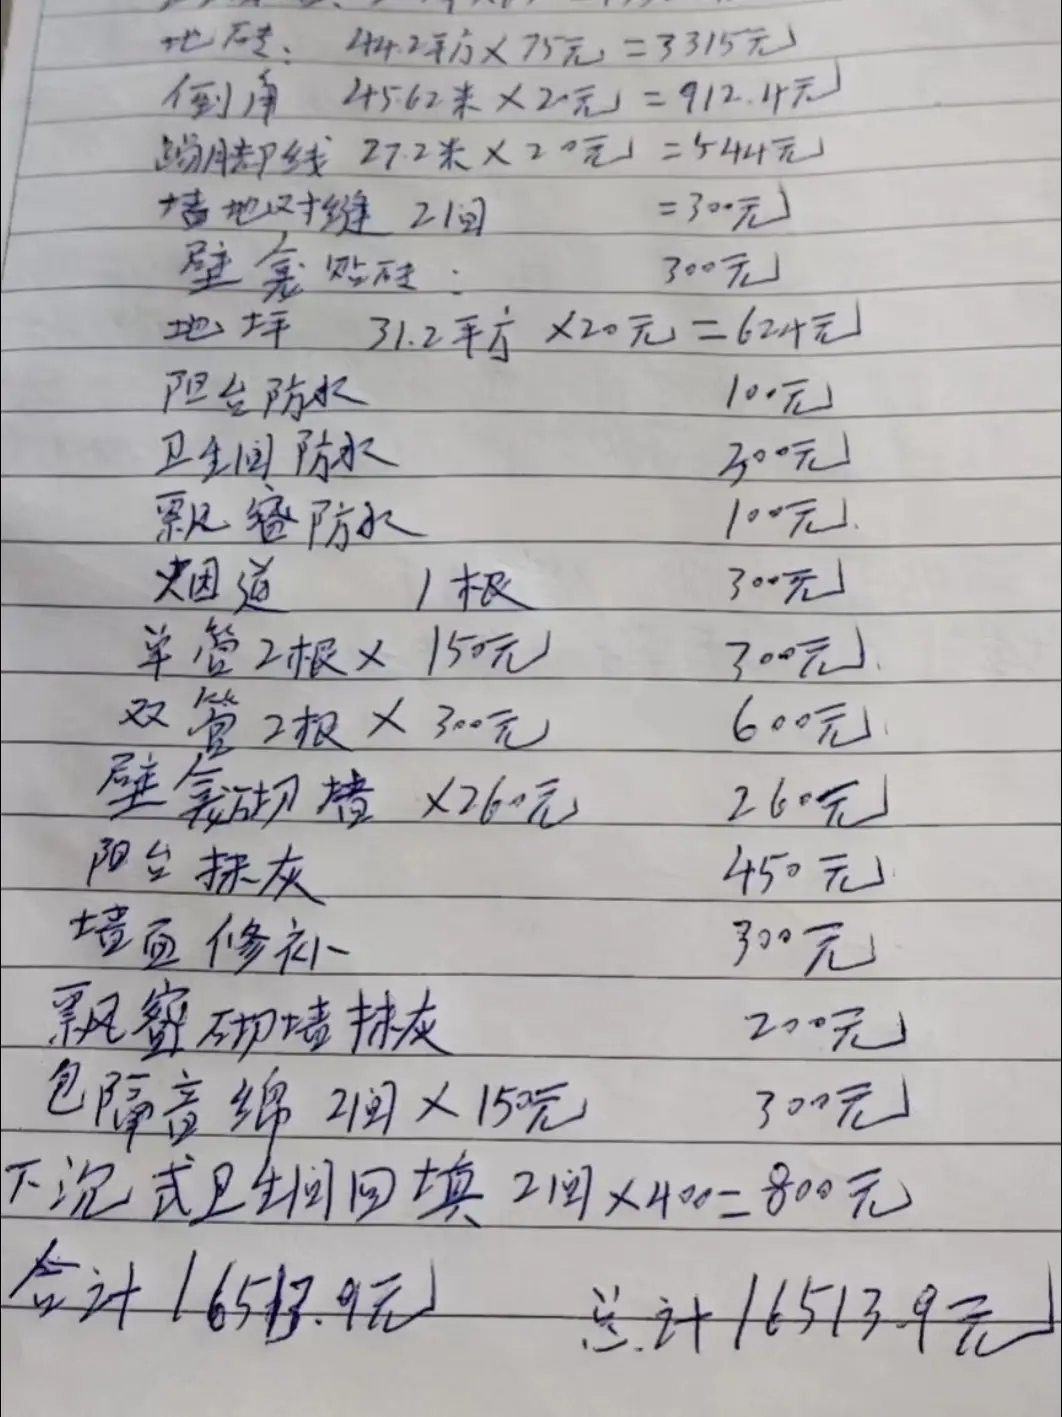 地砖: 44.2平方×75元=3315元
倒角 45.62米×20元=912.4元
踢脚线 27.2米×20元=544元
墙地对缝 2间 =300元
壁龛贴砖: 300元
地坪 31.2平方×20元=624元
阳台防水 100元
卫生间防水 300元
飘窗防水 100元
烟道 1根 300元
单管2根×150元 300元
双管2根×300元 600元
壁龛砌墙×260元 260元
阳台抹灰 450元
墙面修补 300元
飘窗砌墙抹灰 200元
包隔音绵 2间×150元 300元
下沉式卫生间回填 2间×400=800元
合计16513.9元 总计16513.9元